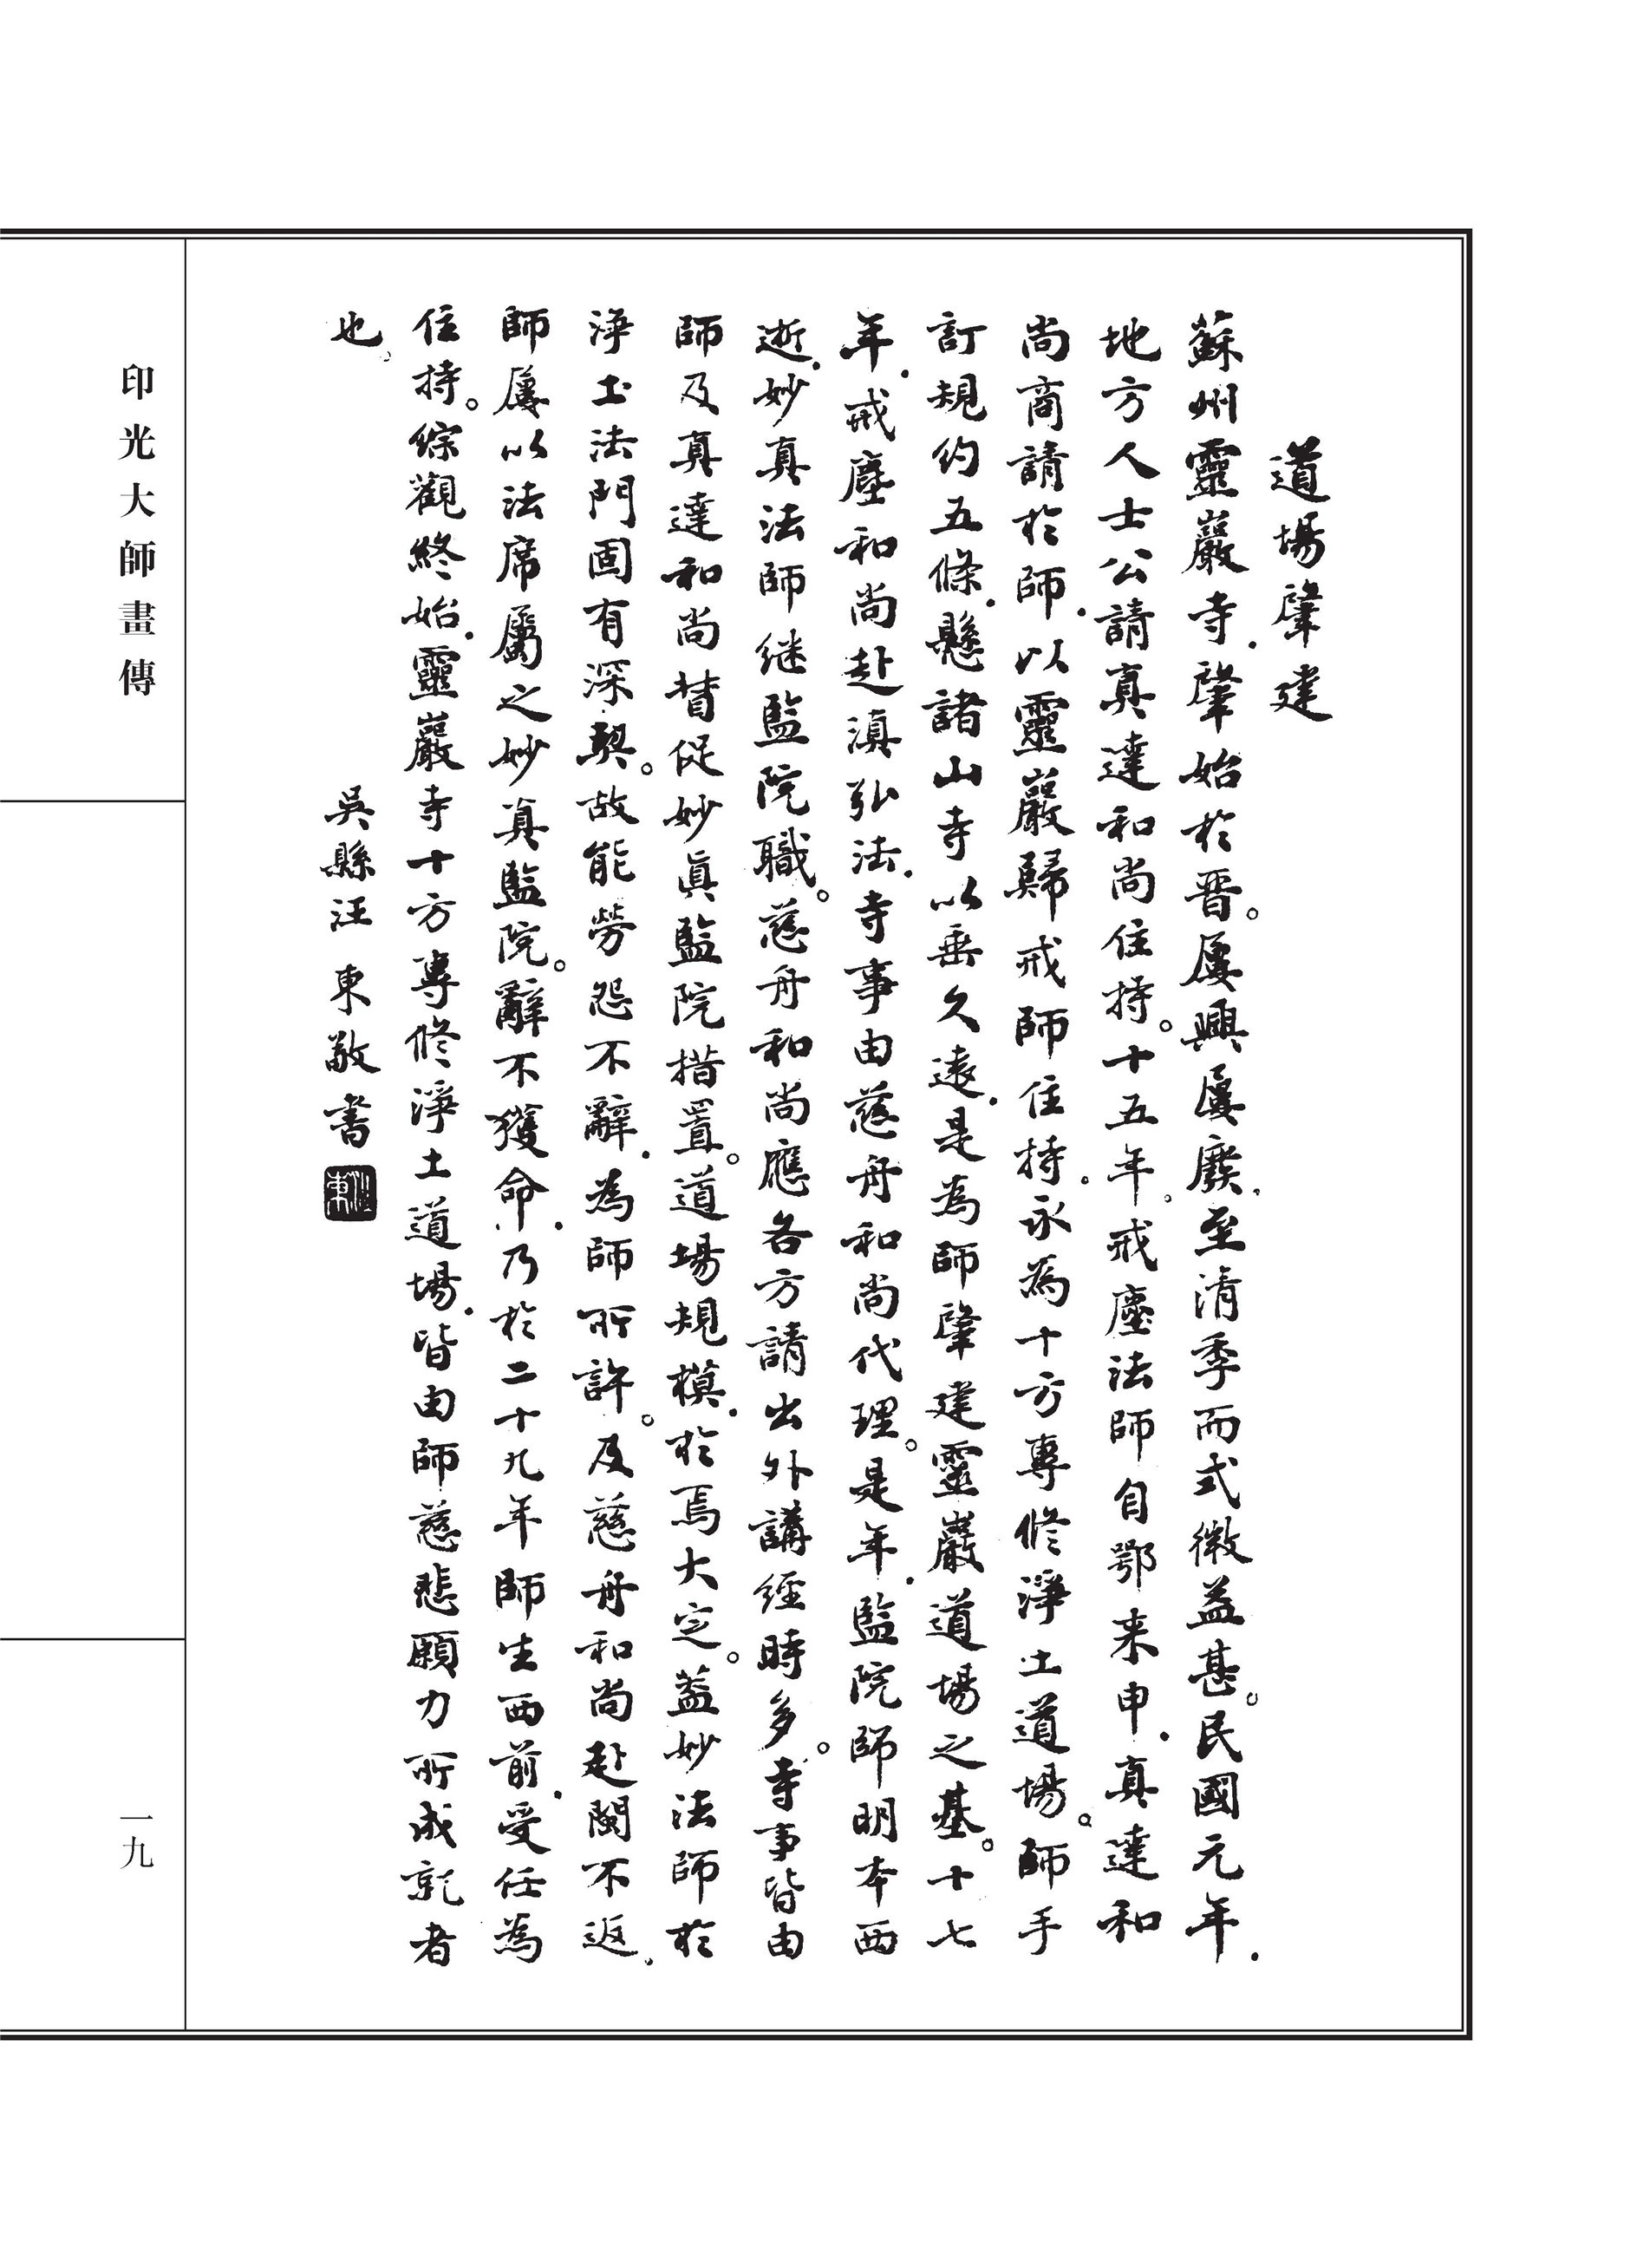 道場肇建
蘇州靈巖寺.肇始於晋。屢興屢廢.至清季而式微益甚。民國元年.
地方人士公請真達和尚住持。十五年。戒塵法師自鄂来申.真達和
尚商請於師.以靈巖歸戒師住持.永為十方專修淨土道場。師手
訂規約五條.懸諸山寺以垂久遠.是為師肇建靈巖道場之基。十七
年.戒塵和尚赴滇弘法.寺事由慈舟和尚代理。是年.監院師明本西
逝.妙真法師继監院職。慈舟和尚應各方請出外講經時多。寺事皆由
師及真達和尚督促妙眞監院措置。道場規模.於焉大定。蓋妙法師於
淨土法門固有深契。故能勞怨不辭.為師所許。及慈舟和尚赴閩不返.
師屢以法席屬之妙真監院。辭不獲命.乃於二十九年師生西前.受任為
住持。綜觀終始.靈巖寺十方專修淨土道場.皆由師慈悲願力所成就者
也。
吳縣汪東敬書
汪東
印光大師畫傳
一九